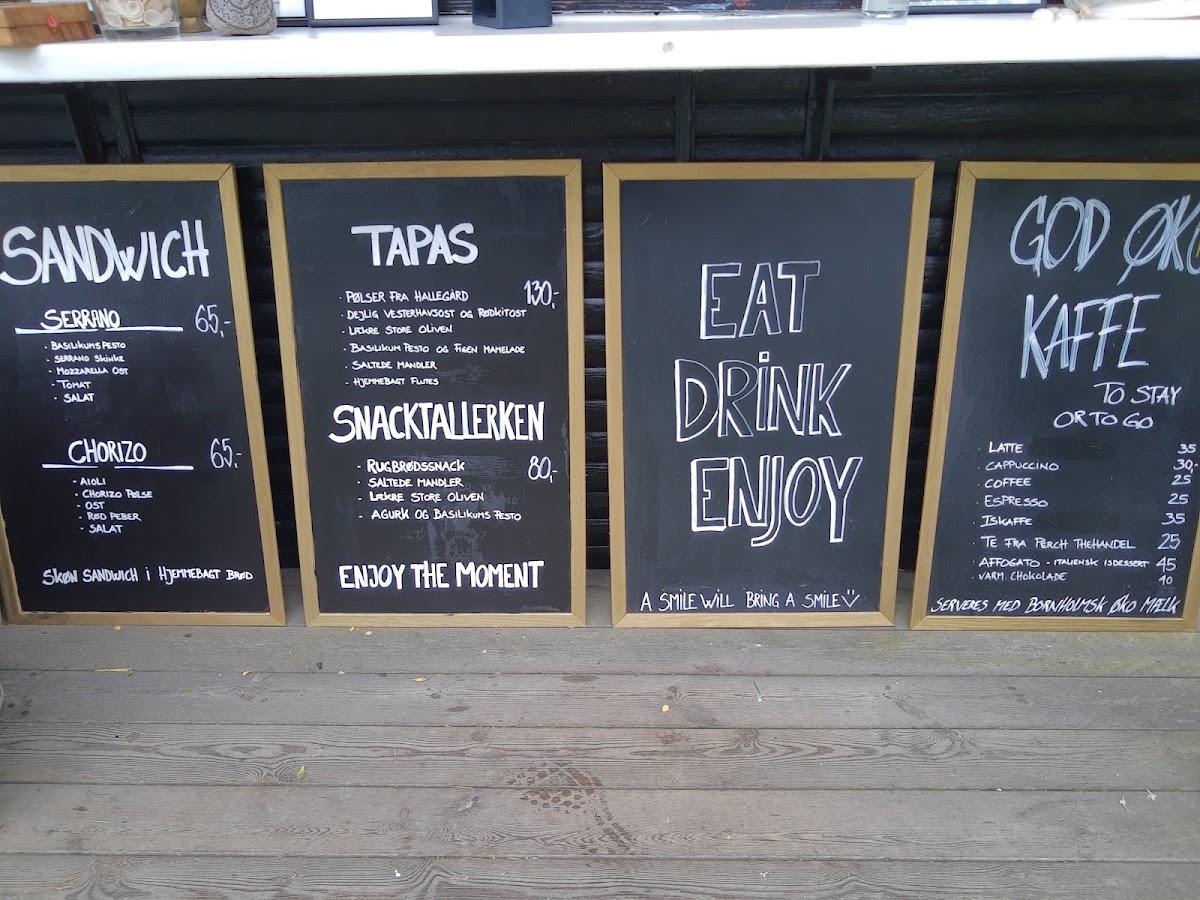 SANDWICH
SERRANO 65,-
· BASILIKUMS PESTO
· SERRANO SKINKE
· MOZZARELLA OST
· TOMAT
· SALAT
CHORIZO 65,-
· AIOLI
· CHORIZO PØLSE
· OST
· RØD PEBER
· SALAT
SKØN SANDWICH i HJEMMEBAGT BRØD
TAPAS
· PØLSER FRA HALLEGÅRD 130,-
· DEJLIG VESTERHAVSOST OG RØDKITOST
· LÆKRE STORE OLIVEN
· BASILIKUM PESTO OG FIGEN MAMELADE
· SALTEDE MANDLER
· HJEMMEBAGT FLUTES
SNACKTALLERKEN
· RUGBRØDSSNACK 80,-
· SALTEDE MANDLER
· LÆKRE STORE OLIVEN
· AGURK OG BASILIKUMS PESTO
ENJOY THE MOMENT
EAT
DRINK
ENJOY
A SMILE WILL BRING A SMILE
GOD ØKO
KAFFE
TO STAY
OR TO GO
· LATTE 35
· CAPPUCCINO 30,
· COFFEE 25
· ESPRESSO 25
· ISKAFFE 35
· TE FRA PERCH THEHANDEL 25
AFFOGATO - ITALIENSK ISDESSERT 45
VARM CHOKOLADE 40
SERVERES MED BORNHOLMSK ØKO MÆLK